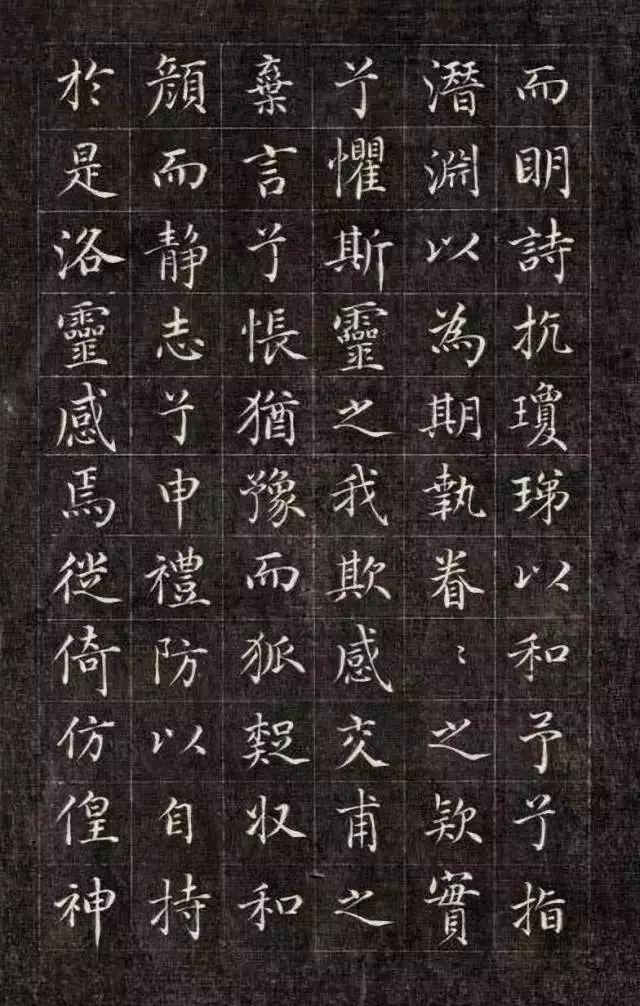 而眀詩抗瓊珶以和予兮指
潛淵以為期執眷〻之欵實
兮懼斯靈之我欺感交甫之
棄言兮悵猶豫而狐疑収和
顔而静志兮申禮防以自持
於是洛靈感焉徙倚仿偟神